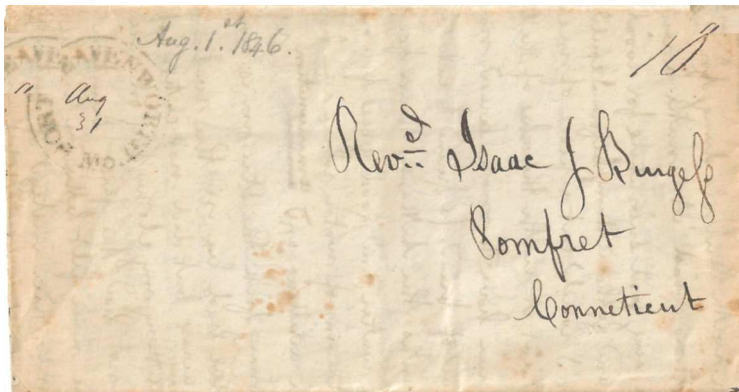 Aug. 1.st 1846.
10
FORT LEAVENWORTH
MO.
Aug
31
Rev.d Isaac J Burgess
Pomfret
Conneticut